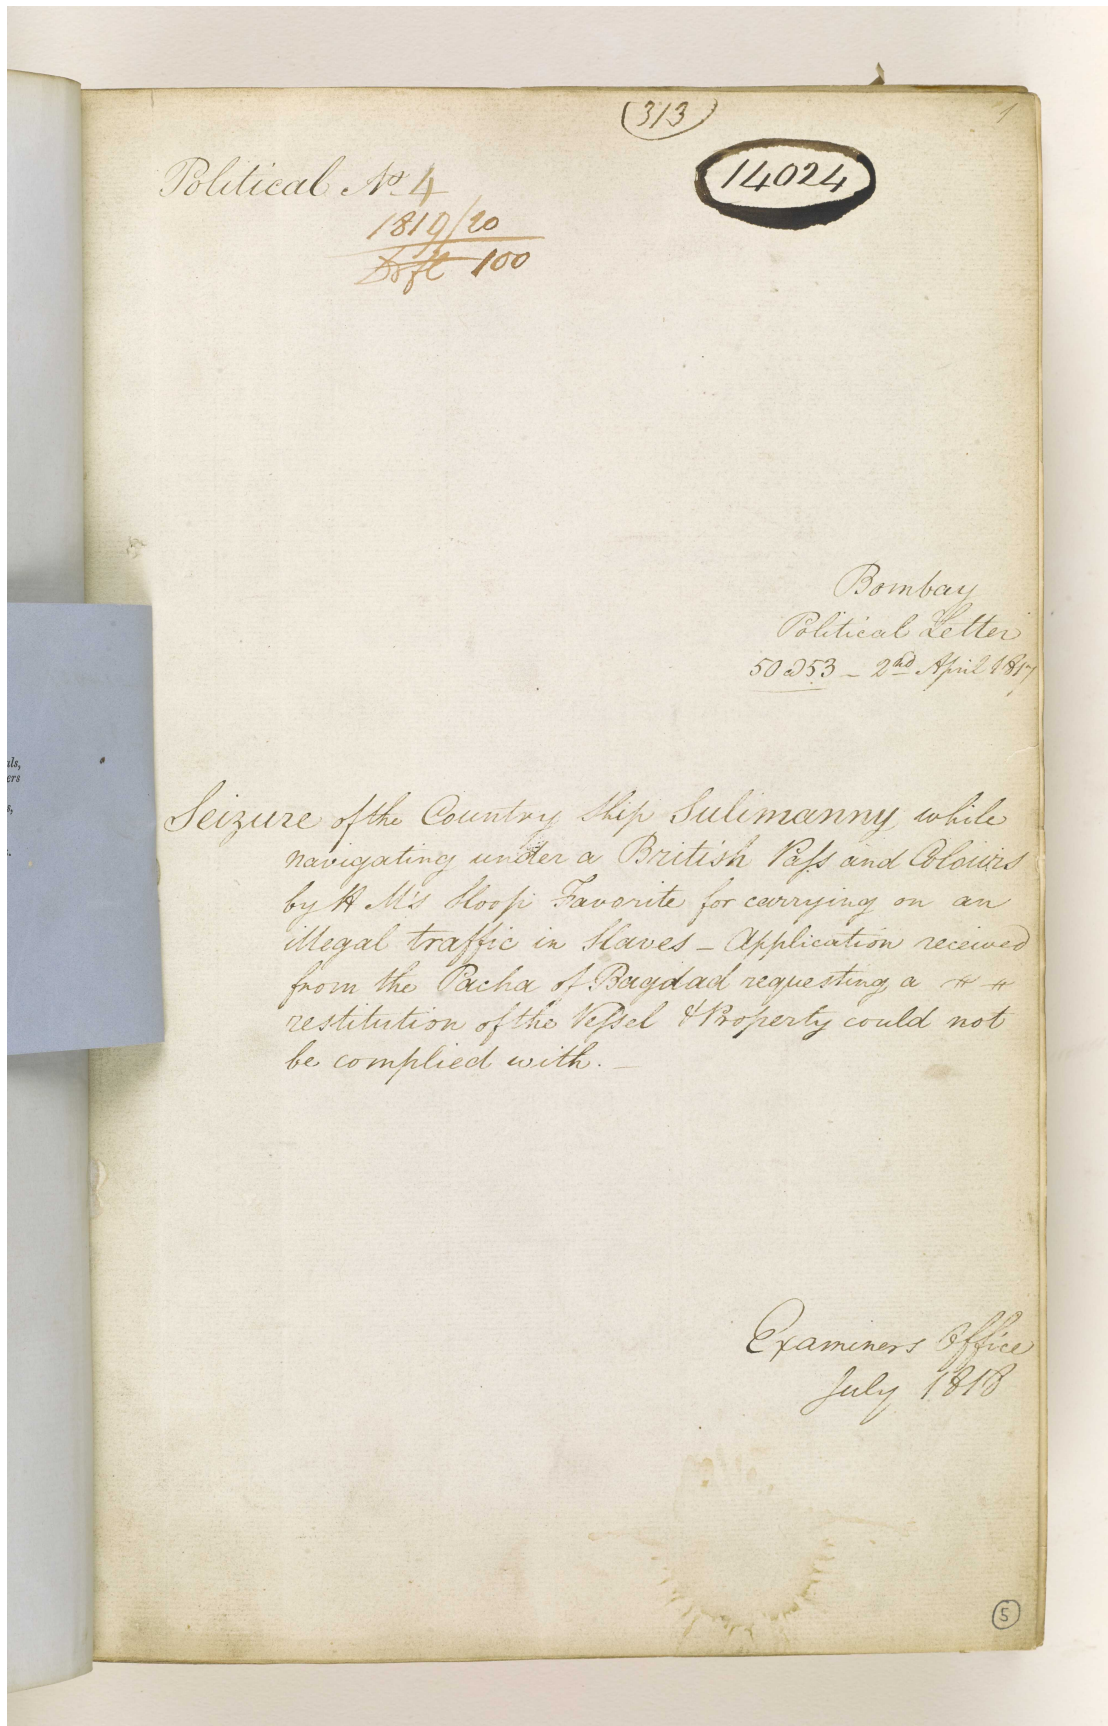 (313)
1
14024
Political No. 4
1819/20
Dft 100
Bombay
Political Letter
50 @ 53 - 2nd April 1817
Seizure of the Country Ship Sulimanny while
navigating under a British Pass and Colours
by H M's Sloop Favorite for carrying on an
illegal traffic in Slaves - Application received
from the Pacha of Bagdad requesting a
restitution of the Vessel & Property could not
be complied with. -
Examiners Office
July 1818
5